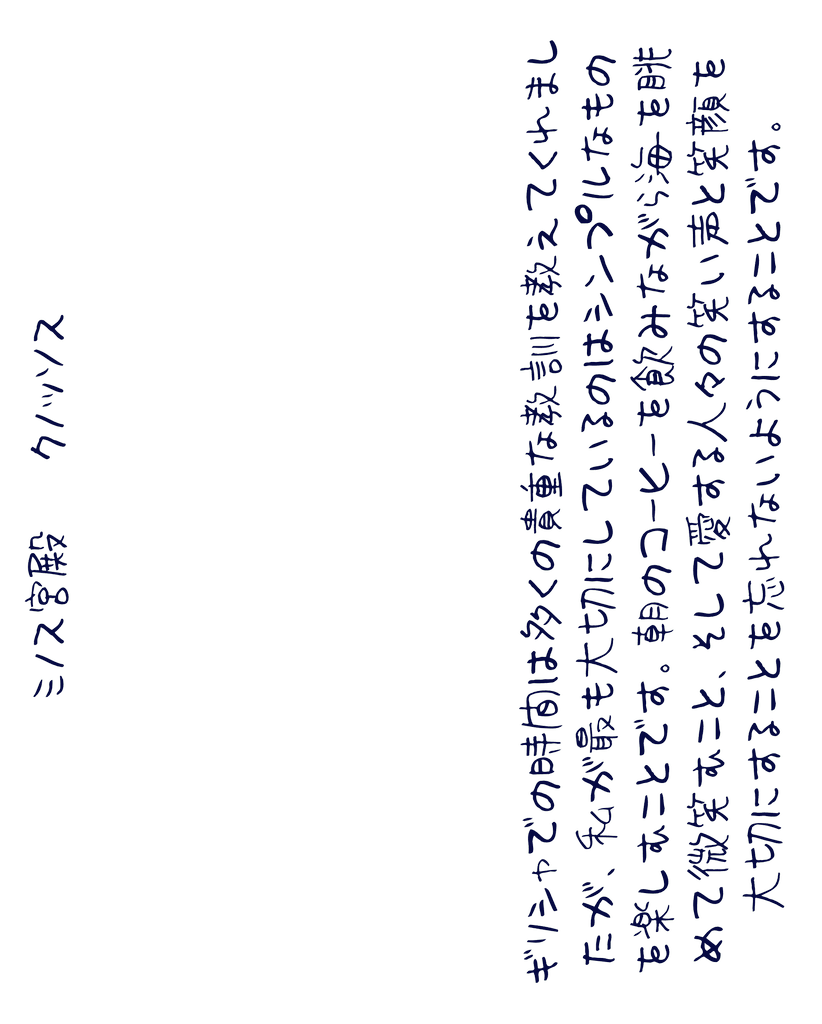 ミノス宮殿 クノッソス
ギリシャでの時間は多くの貴重な教訓を教えてくれまし
たが、私が最も大切にしているのはシンプルなもの
を楽しむことです。朝のコーヒーを飲みながら海を眺
めて微笑むこと、そして愛する人々の笑い声と笑顔を
大切にすることを忘れないようにすることです。